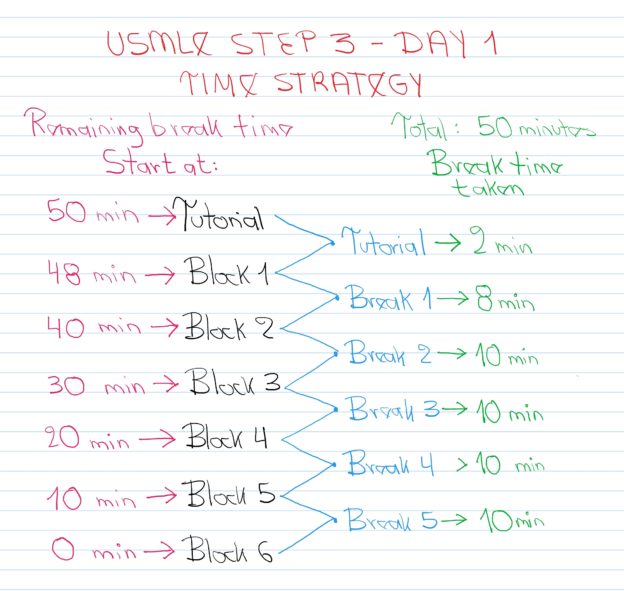 USMLE STEP 3 - DAY 1
TIME STRATEGY
Remaining break time
Start at:
Total: 50 minutes
Break time
taken
50 min → Tutorial
Tutorial → 2 min
48 min → Block 1
Break 1 → 8 min
40 min → Block 2
Break 2 → 10 min
30 min → Block 3
Break 3 → 10 min
20 min → Block 4
Break 4 > 10 min
10 min → Block 5
Break 5 → 10 min
0 min → Block 6